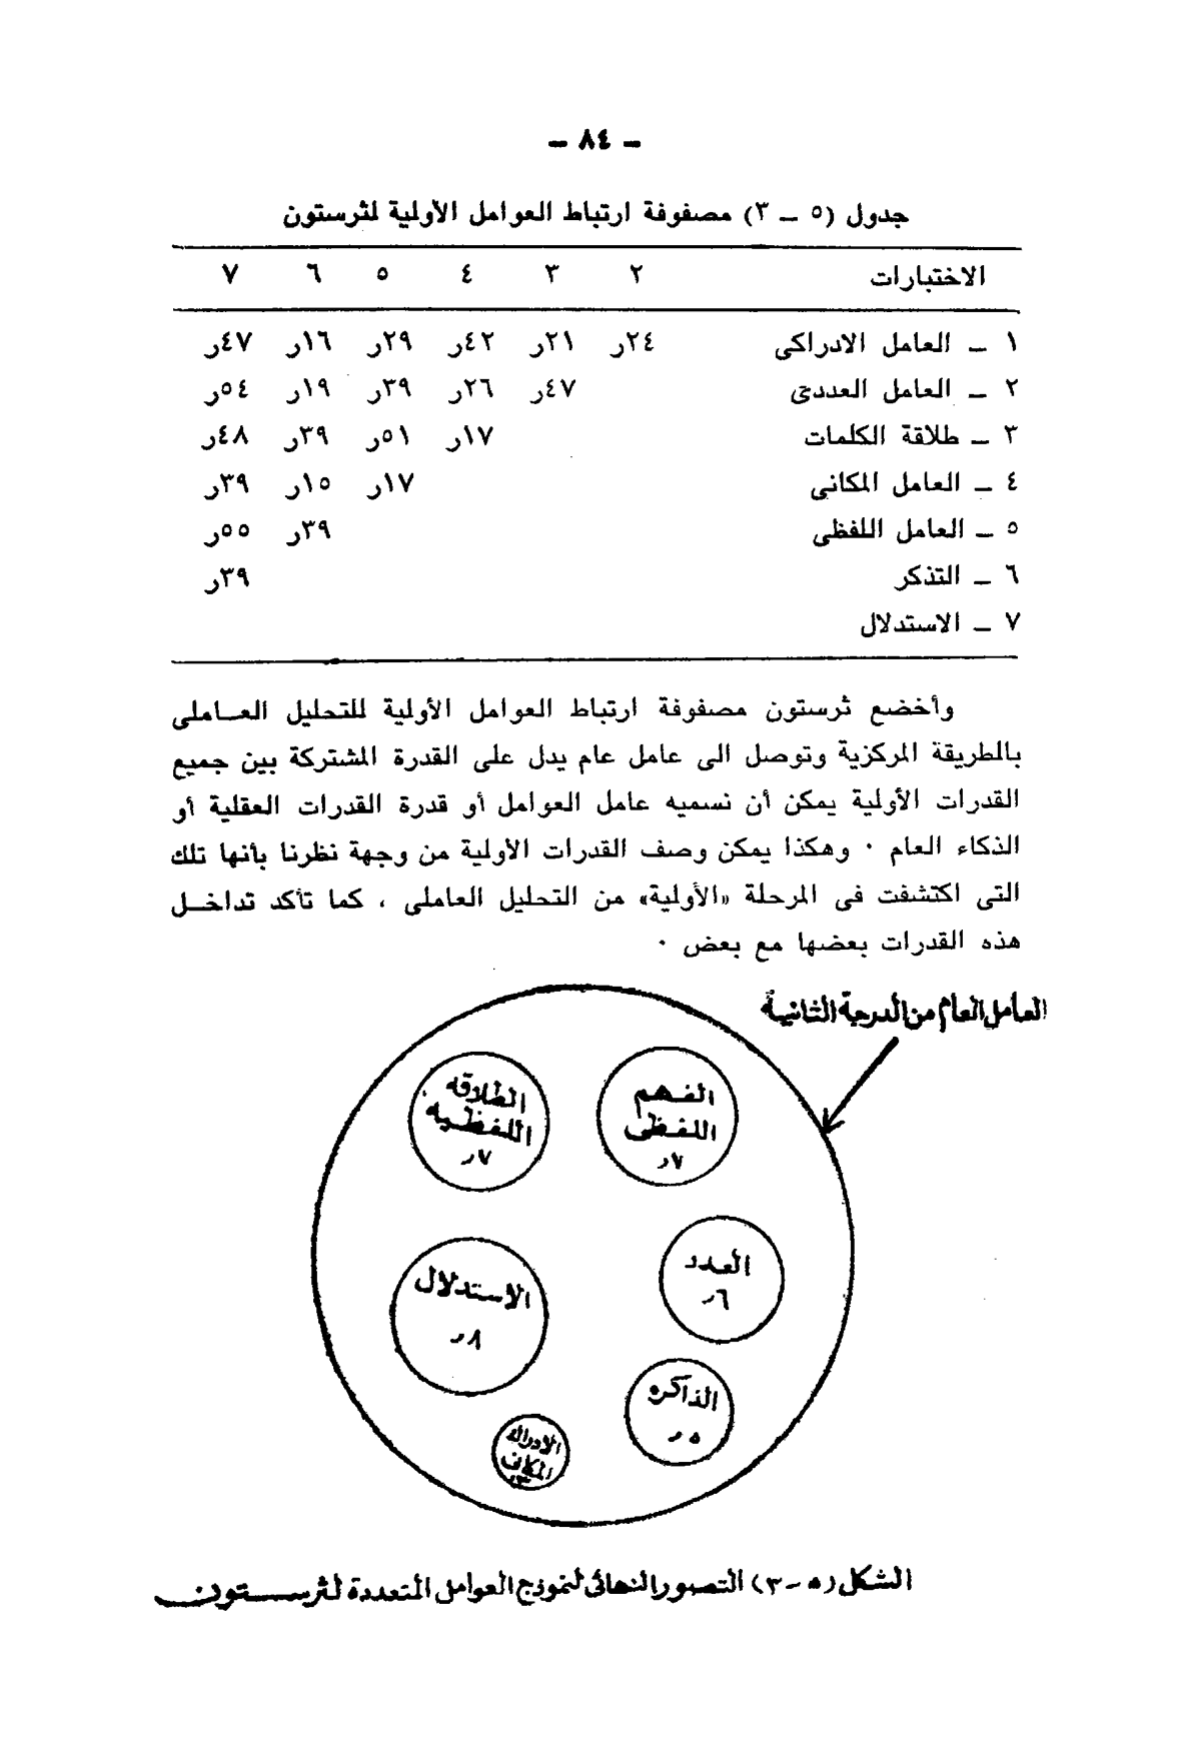 – ٨٤ –
جدول (٥ – ٣) مصفوفة ارتباط العوامل الأولية لثرستون
الاختبارات ٢ ٣ ٤ ٥ ٦ ٧
١ – العامل الادراكى ٢٤ر ٢١ر ٤٢ر ٢٩ر ١٦ر ٤٧ر
٢ – العامل العددى ٤٧ر ٢٦ر ٣٩ر ١٩ر ٥٤ر
٣ – طلاقة الكلمات ١٧ر ٥١ر ٣٩ر ٤٨ر
٤ – العامل المكانى ١٧ر ١٥ر ٣٩ر
٥ – العامل اللفظى ٣٩ر ٥٥ر
٦ – التذكر ٣٩ر
٧ – الاستدلال
وأخضع ثرستون مصفوفة ارتباط العوامل الأولية للتحليل العــاملى
بالطريقة المركزية وتوصل الى عامل عام يدل على القدرة المشتركة بين جميع
القدرات الأولية يمكن أن نسميه عامل العوامل أو قدرة القدرات العقلية أو
الذكاء العام ٠ وهكذا يمكن وصف القدرات الأولية من وجهة نظرنا بأنها تلك
التى اكتشفت فى المرحلة «الأولية» من التحليل العاملى ، كما تأكد تداخــل
هذه القدرات بعضها مع بعض ٠
العامل العام من الدرجة الثانية
الفهم
اللفظى
٧ر
الطلاقه
اللفظيه
٧ر
العدد
٦ر
الاستدلال
٨ر
الذاكره
٥ر
الادراك
المكانى
٣ر
الشكل (٥-٣) التصور النهائى لنموذج العوامل المتعددة لثرســـتون